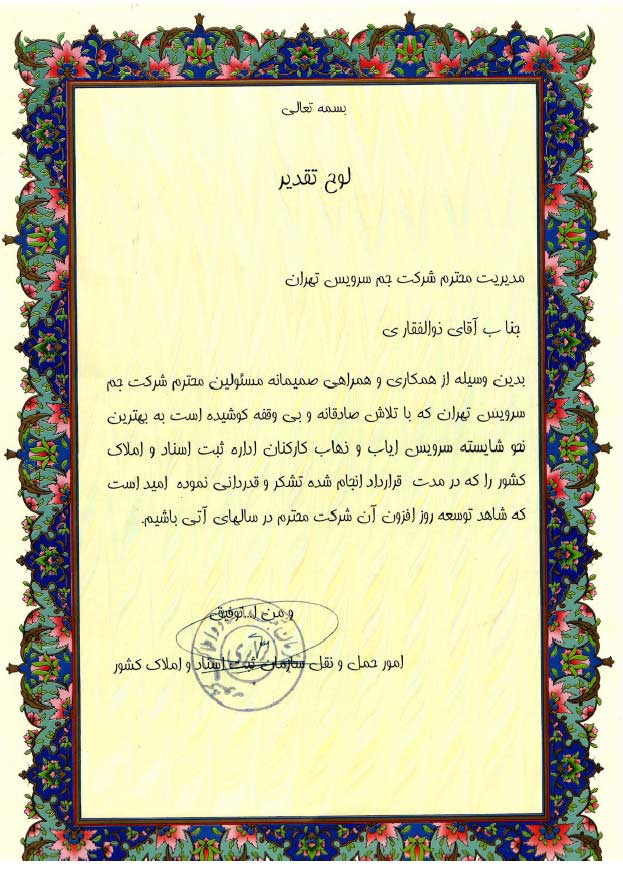 بسمه تعالی
لوح تقدیر
مدیریت محترم شرکت جم سرویس تهران
جنا ب آقای ذوالفقاری
بدین وسیله از همکاری و همراهی صمیمانه مسئولین محترم شرکت جم
سرویس تهران که با تلاش صادقانه و بی وقفه کوشیده است به بهترین
نحو شایسته سرویس ایاب و ذهاب کارکنان اداره ثبت اسناد و املاک
کشور را که در مدت قرارداد انجام شده تشکر و قدردانی نموده امید است
که شاهد توسعه روز افزون آن شرکت محترم در سالهای آتی باشیم.
و من ا...توفیق
امور حمل و نقل سازمان ثبت اسناد و املاک کشور